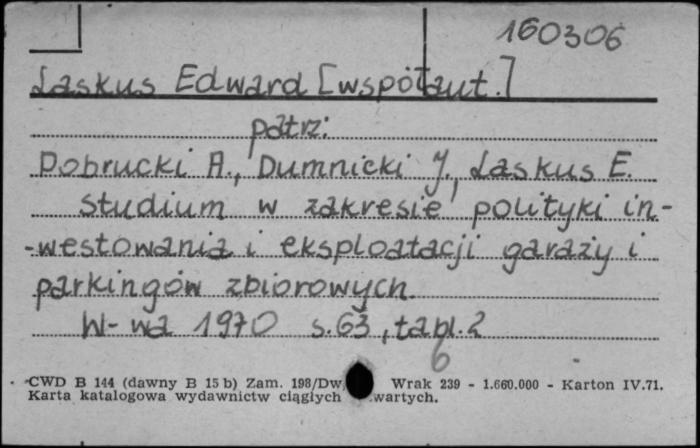 160306
Laskus Edward [współaut.]
patrz:
Dobrucki A., Dumnicki J., Laskus E.
studium w zakresie polityki in-
-westowania i eksploatacji garaży i
parkingów zbiorowych.
W-wa 1970 s.63, tabl.2
6
CWD B 144 (dawny B 15 b) Zam. 198/Dw. Wrak 239 - 1.660.000 - Karton IV.71.
Karta katalogowa wydawnictw ciągłych wartych.